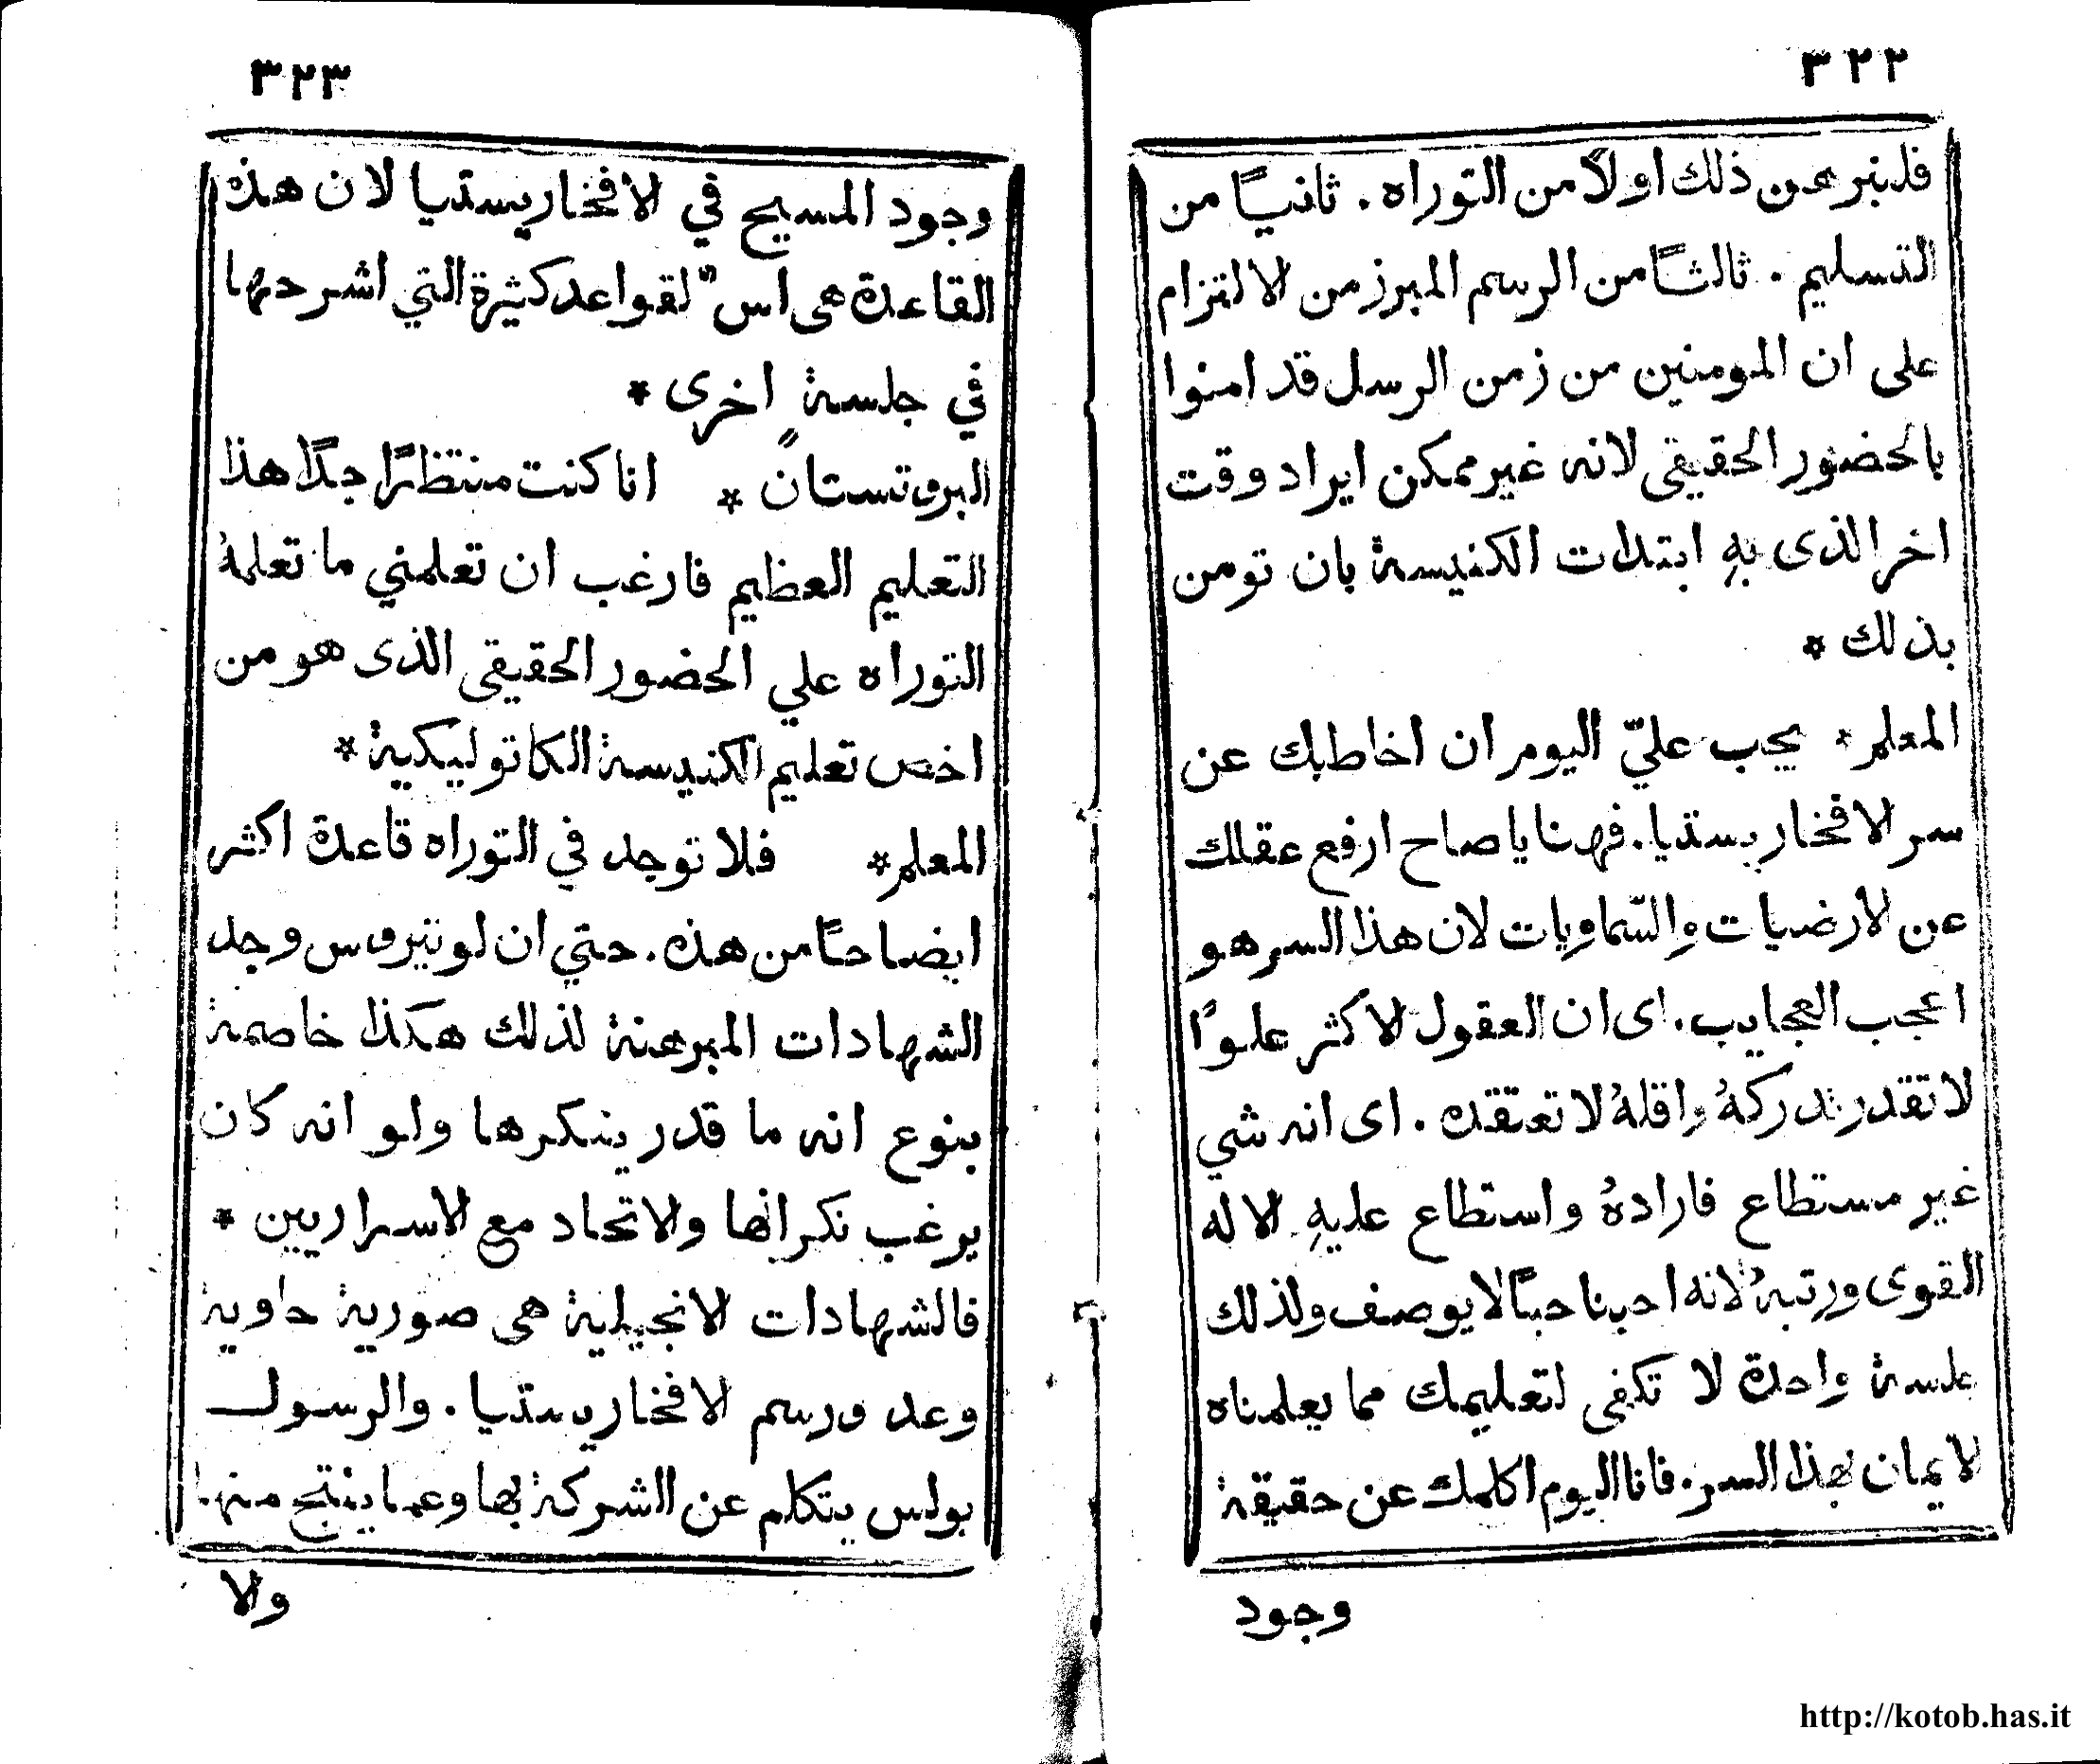 ٣٢٢
فلنبرهن ذلك اولاً من التوراه . ثانيـاً من
التسليم . ثالثـاً من الرسم المبرز من الالتزام
على ان المومنين من زمن الرسل قد امنوا
بالحضور الحقيقى لانه غير ممكن ايراد وقت
اخر الذى بهِ ابتدات الكنيسة بان تومن
بذلك *
المعلم * يجب عليّ اليوم ان اخاطبك عن
سر الافخاريستيا . فهنا يا صاح ارفع عقلك
عن الارضيات والسّماويات لان هذا السر هو
اعجب العجايب . اى ان العقول الاكثر علوًا
لا تقدر تدركهُ واقلهُ لا تعتقده . اى انه شي
غير مستطاع فارادهُ واستطاع عليهِ الاله
القوى ورتبهُ لانه احبنا حبـًا لا يوصف ولذلك
جلسة واحدة لا تكفى لتعليمك مما يعلمناه
الايمان بهذا السر . فانا اليوم اكلمك عن حقيقة
وجود
٣٢٣
وجود المسيح في الافخاريستيا لان هذه
القاعدة هى اسٌ لقواعد كثيرة التي اشرحها
في جلسةٍ اخرى *
البروتستان * انا كنت منتظرًا جدًا هذا
التعليم العظيم فارغب ان تعلمني ما تعلمهُ
التوراه علي الحضور الحقيقى الذى هو من
اخص تعليم الكنيسة الكاتوليكية *
المعلم * فلا توجد في التوراه قاعدة اكثر
ايضاحـًا من هذه . حتي ان لوتيروس وجد
الشهادات المبرهنة لذلك هكذا خاصمة
بنوع انه ما قدر ينكرها ولو انه كان
يرغب نكرانها والاتحاد مع الاسراريين *
فالشهادات الانجيلية هى صورية حاوية
وعد ورسم الافخاريستيا . والرسول
بولس يتكلم عن الشركة بها وعما ينتج منها
ولا
http://kotob.has.it